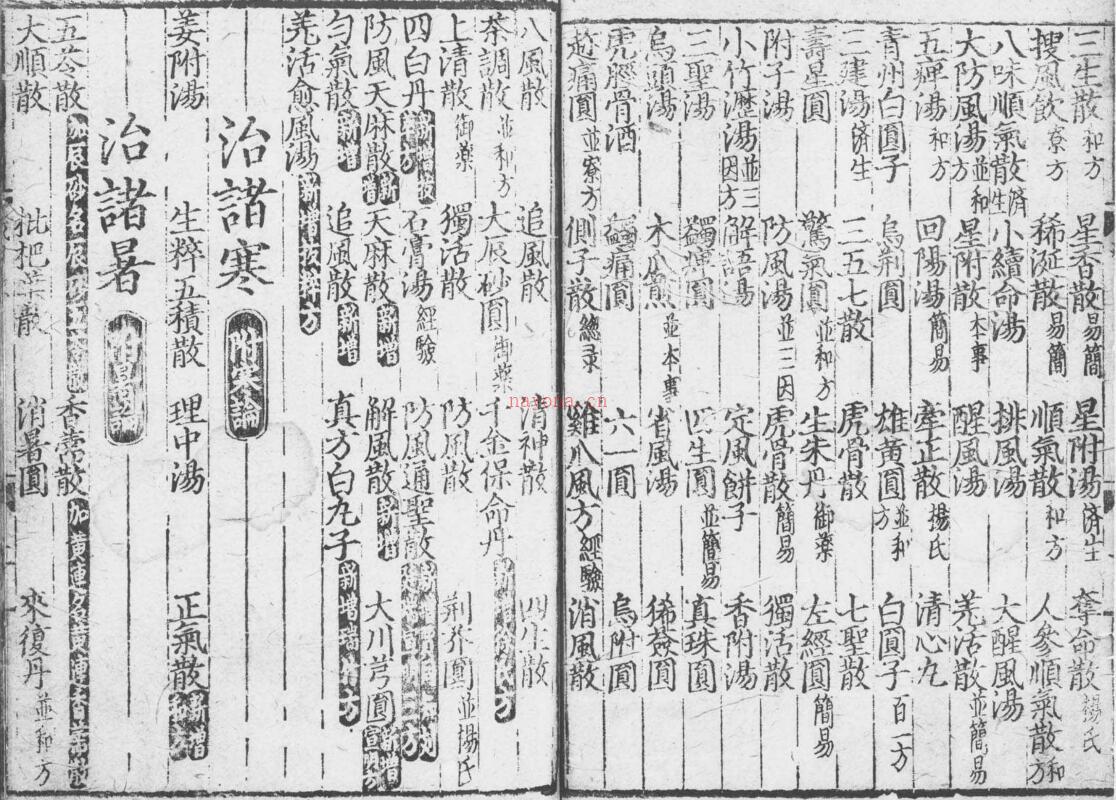 三生散和方 星香散易簡 星附湯濟生 奪命散楊氏
搜風飲寮方 稀涎散易簡 順氣散和方 人參順氣散和方
八味順氣散濟生 小續命湯 排風湯 大醒風湯
大防風湯並和方 星附散本事 醒風湯 羌活散並簡易
五痺湯和方 回陽湯簡易 牽正散楊氏 清心丸
青州白圓子 烏荊圓 雄黃圓並和方 白圓子百一方
三建湯濟生 三五七散 虎骨散 七聖散
壽星圓 驚氣圓並和方 生朱丹御藥 左經圓簡易
附子湯 防風湯並三因 虎骨散簡易 獨活散
小竹瀝湯並三因方 解語湯 定風餅子 香附湯
三聖湯 蠲痺圓 四生圓並簡易 真珠圓
烏頭湯 木瓜煎並本事 省風湯 豨薟圓
虎脛骨酒 蠲痛圓 六一圓 烏附圓
趁痛圓並寮方 側子散總录 雞八風方經驗 消風散
八風散 追風散 清神散 四生散
茶調散並和方 大辰砂圓御藥 千金保命丹
上清散御藥 獨活散 防風散 荊芥圓並楊氏
四白丹 石膏湯經驗 防風通聖散
防風天麻散新增 天麻散新增 解風散新增 大川芎圓新增宣明方
勻氣散新增 追風散新增 真方白丸子
羌活愈風湯新增拔粹方
治諸寒 附寒論
姜附湯 生粹五積散 理中湯 正氣散
治諸暑 附暑論
五苓散 香薷散加黃連名黃連香薷散
大順散 枇杷葉散 消暑圓 來復丹並和方
nayona.cn